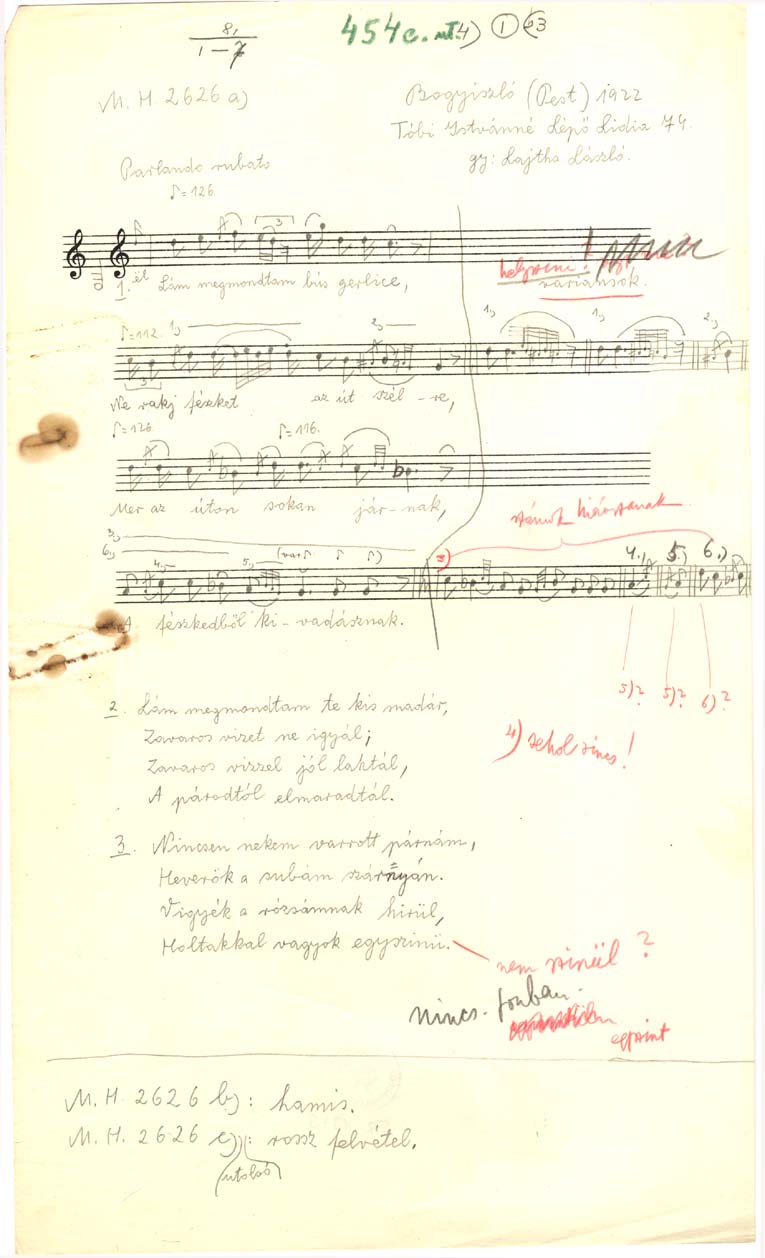 8,
1-7
454c.
1
63
M. H. 2626 a)
Bogyiszló (Pest) 1922
Tóbi Istvánné Lépő Lidia 74.
gy: Lajtha László.
Parlando rubato
♪= 126
3
1. Lám megmondtam bús gerlice,
helyszini!
variánsok.
♪=112. 1,)
2,)
1,)
1,)
2,)
3
Ne rakj fészket az út szél-re,
♪=126
♪=116.
Mer az úton sokan jár-nak,
3,)
6,)
4,)
5,)
(var ♪ ♪ ♪)
3)
4.,)
5,)
6.)
A fészkedből ki-vadásznak.
5)?
5)?
6)?
4) sehol sincs!
2. Lám megmondtam te kis madár,
Zavaros vizet ne igyál;
Zavaros vizzel jól laktál,
A párodtól elmaradtál.
3. Nincsen nekem varrott párnám,
Heverök a subám szárnyán.
Vigyék a rózsámnak hirül,
Holtakkal vagyok egyszinü.
nem szinül?
nincs.
egyszint
M. H. 2626 b): hamis.
M. H. 2626 c): rossz felvétel.
(utolsó)